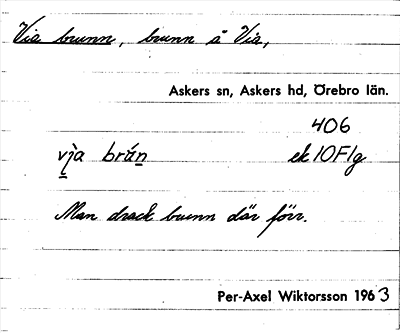 Via brunn, brunn å Via,
Askers sn, Askers hd, Örebro län.
406
vi̠a brún̠ ek 10F1g
Man drack brunn där förr.
Per-Axel Wiktorsson 1963